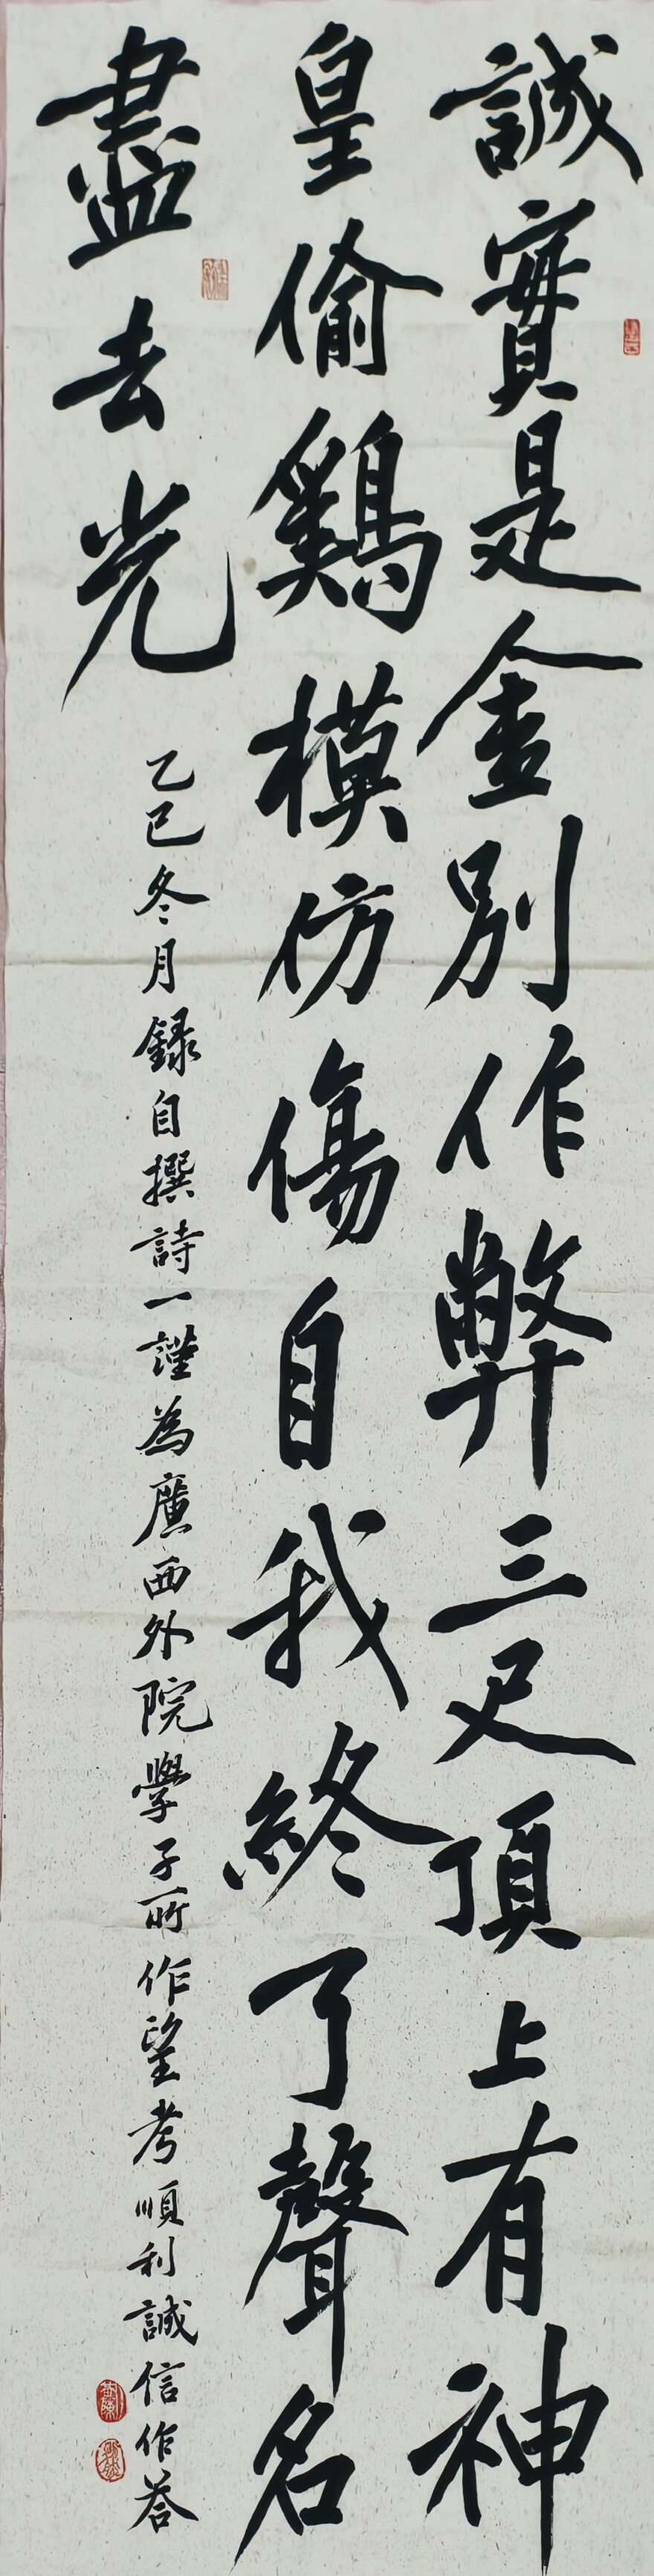 誠實是金別作弊三尺頂上有神
皇偷鷄模仿傷自我終了聲名
盡去光
乙巳冬月錄自撰詩一謹為廣西外院學子所作望考順利誠信作答